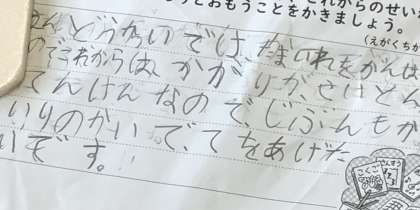 これからのせい
とおもうことをかきましょう。
(えがくちか
どうかいでは、たまいれをがんば
のでこれからは、かかりがさいとん
てんけんなので、じぶんもか
いりのかいで、てをあげた
いです。
こくご
さんすう